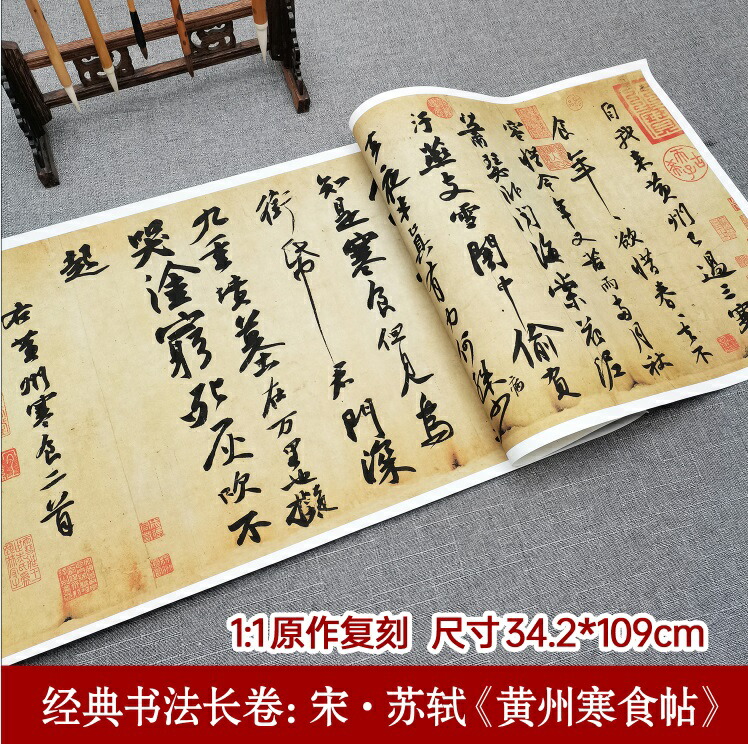 自我来黄州已過三寒
食年、欲惜春、去不
容惜今年又苦雨兩月秋
蕭瑟卧聞海棠花泥
汙燕支雪闇中偷負
去夜半真有力何殊
病
知是寒食但見烏
銜帋君門深
九重墳墓在万里也擬
哭塗窮死灰吹不
起
右黄州寒食二首
1:1原作复刻 尺寸34.2*109cm
经典书法长卷:宋·苏轼《黄州寒食帖》